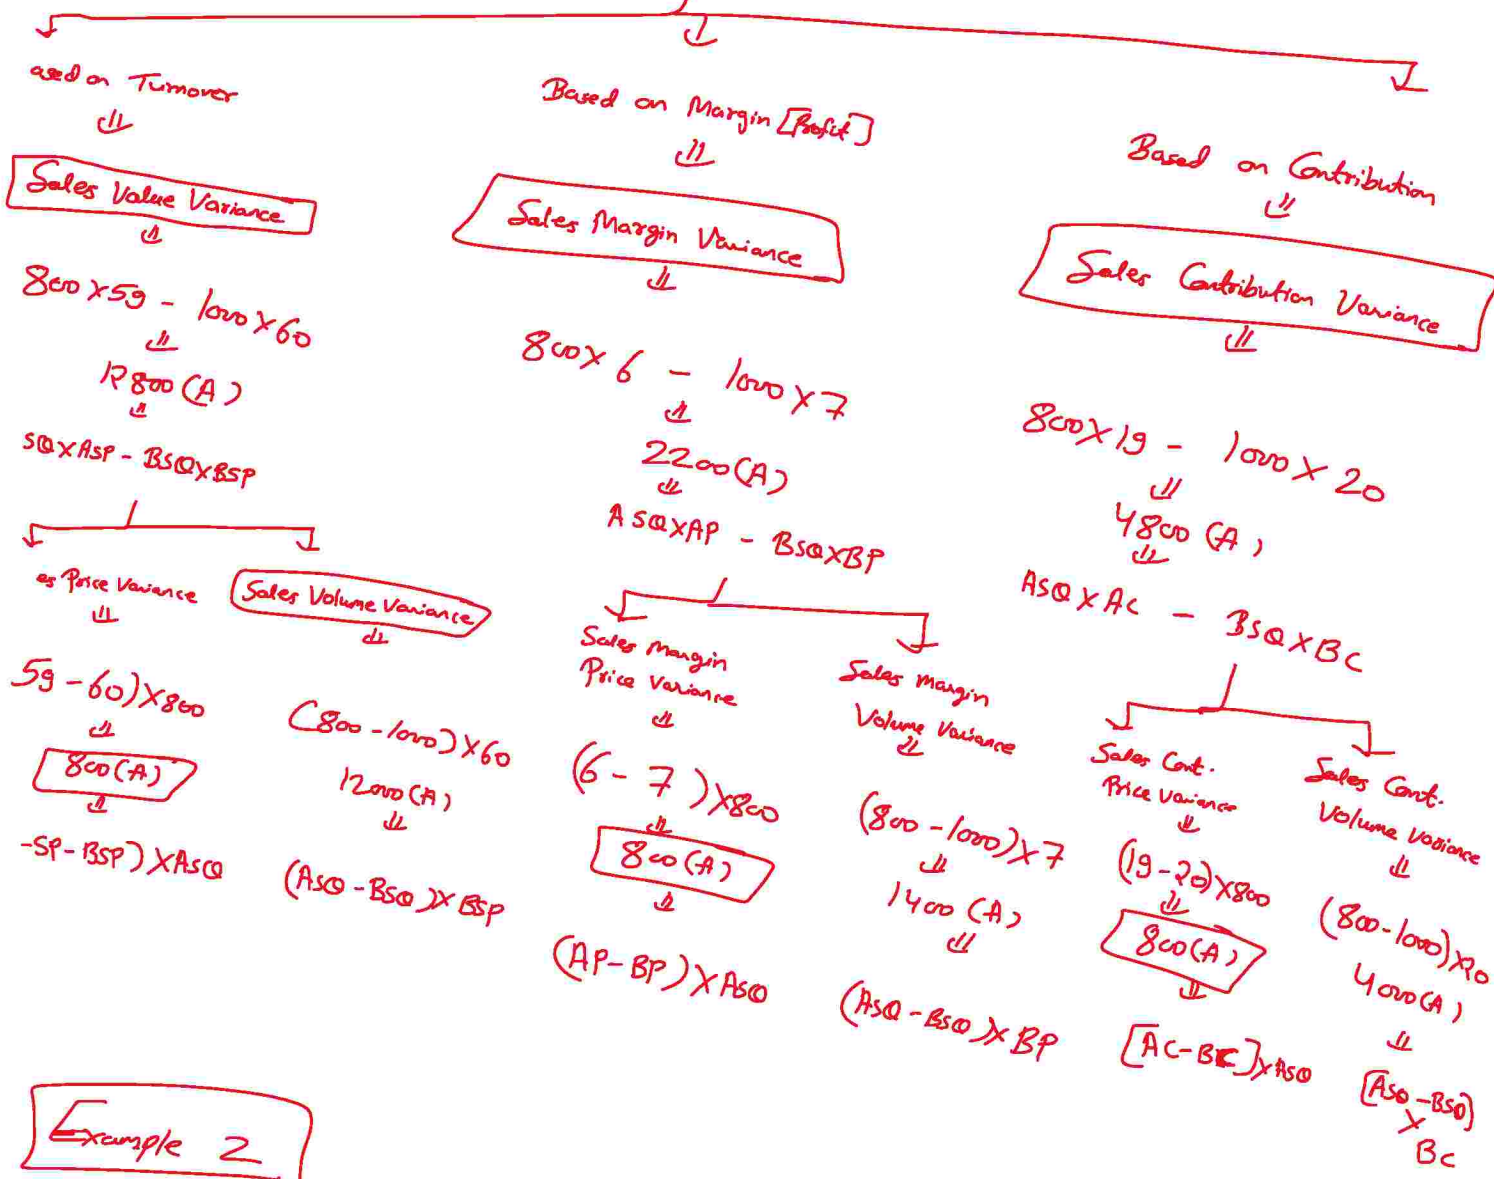 ased on Turnover
Sales Value Variance
800 × 59 - 1000 × 60
12800 (A)
SQ×ASP - BSQ×BSP
es Price Variance
59 - 60) × 800
800 (A)
-SP - BSP) × ASQ
Sales Volume Variance
(800 - 1000) × 60
12000 (A)
(ASQ - BSQ) × BSP
Based on Margin [Profit]
Sales Margin Variance
800 × 6 - 1000 × 7
2200 (A)
ASQ×AP - BSQ×BP
Sales Margin
Price Variance
(6 - 7) × 800
800 (A)
(AP - BP) × ASQ
Sales Margin
Volume Variance
(800 - 1000) × 7
1400 (A)
(ASQ - BSQ) × BP
Based on Contribution
Sales Contribution Variance
800 × 19 - 1000 × 20
4800 (A)
ASQ × AC - BSQ × BC
Sales Cont.
Price Variance
(19 - 20) × 800
800 (A)
[AC - BC] × ASQ
Sales Cont.
Volume Variance
(800 - 1000) × 20
4000 (A)
[ASQ - BSQ]
×
BC
Example 2